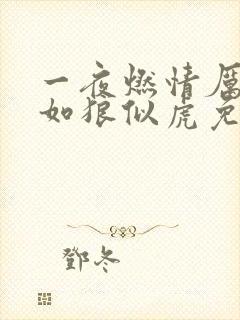 一夜燃情厉
如狼似虎免
鄧冬